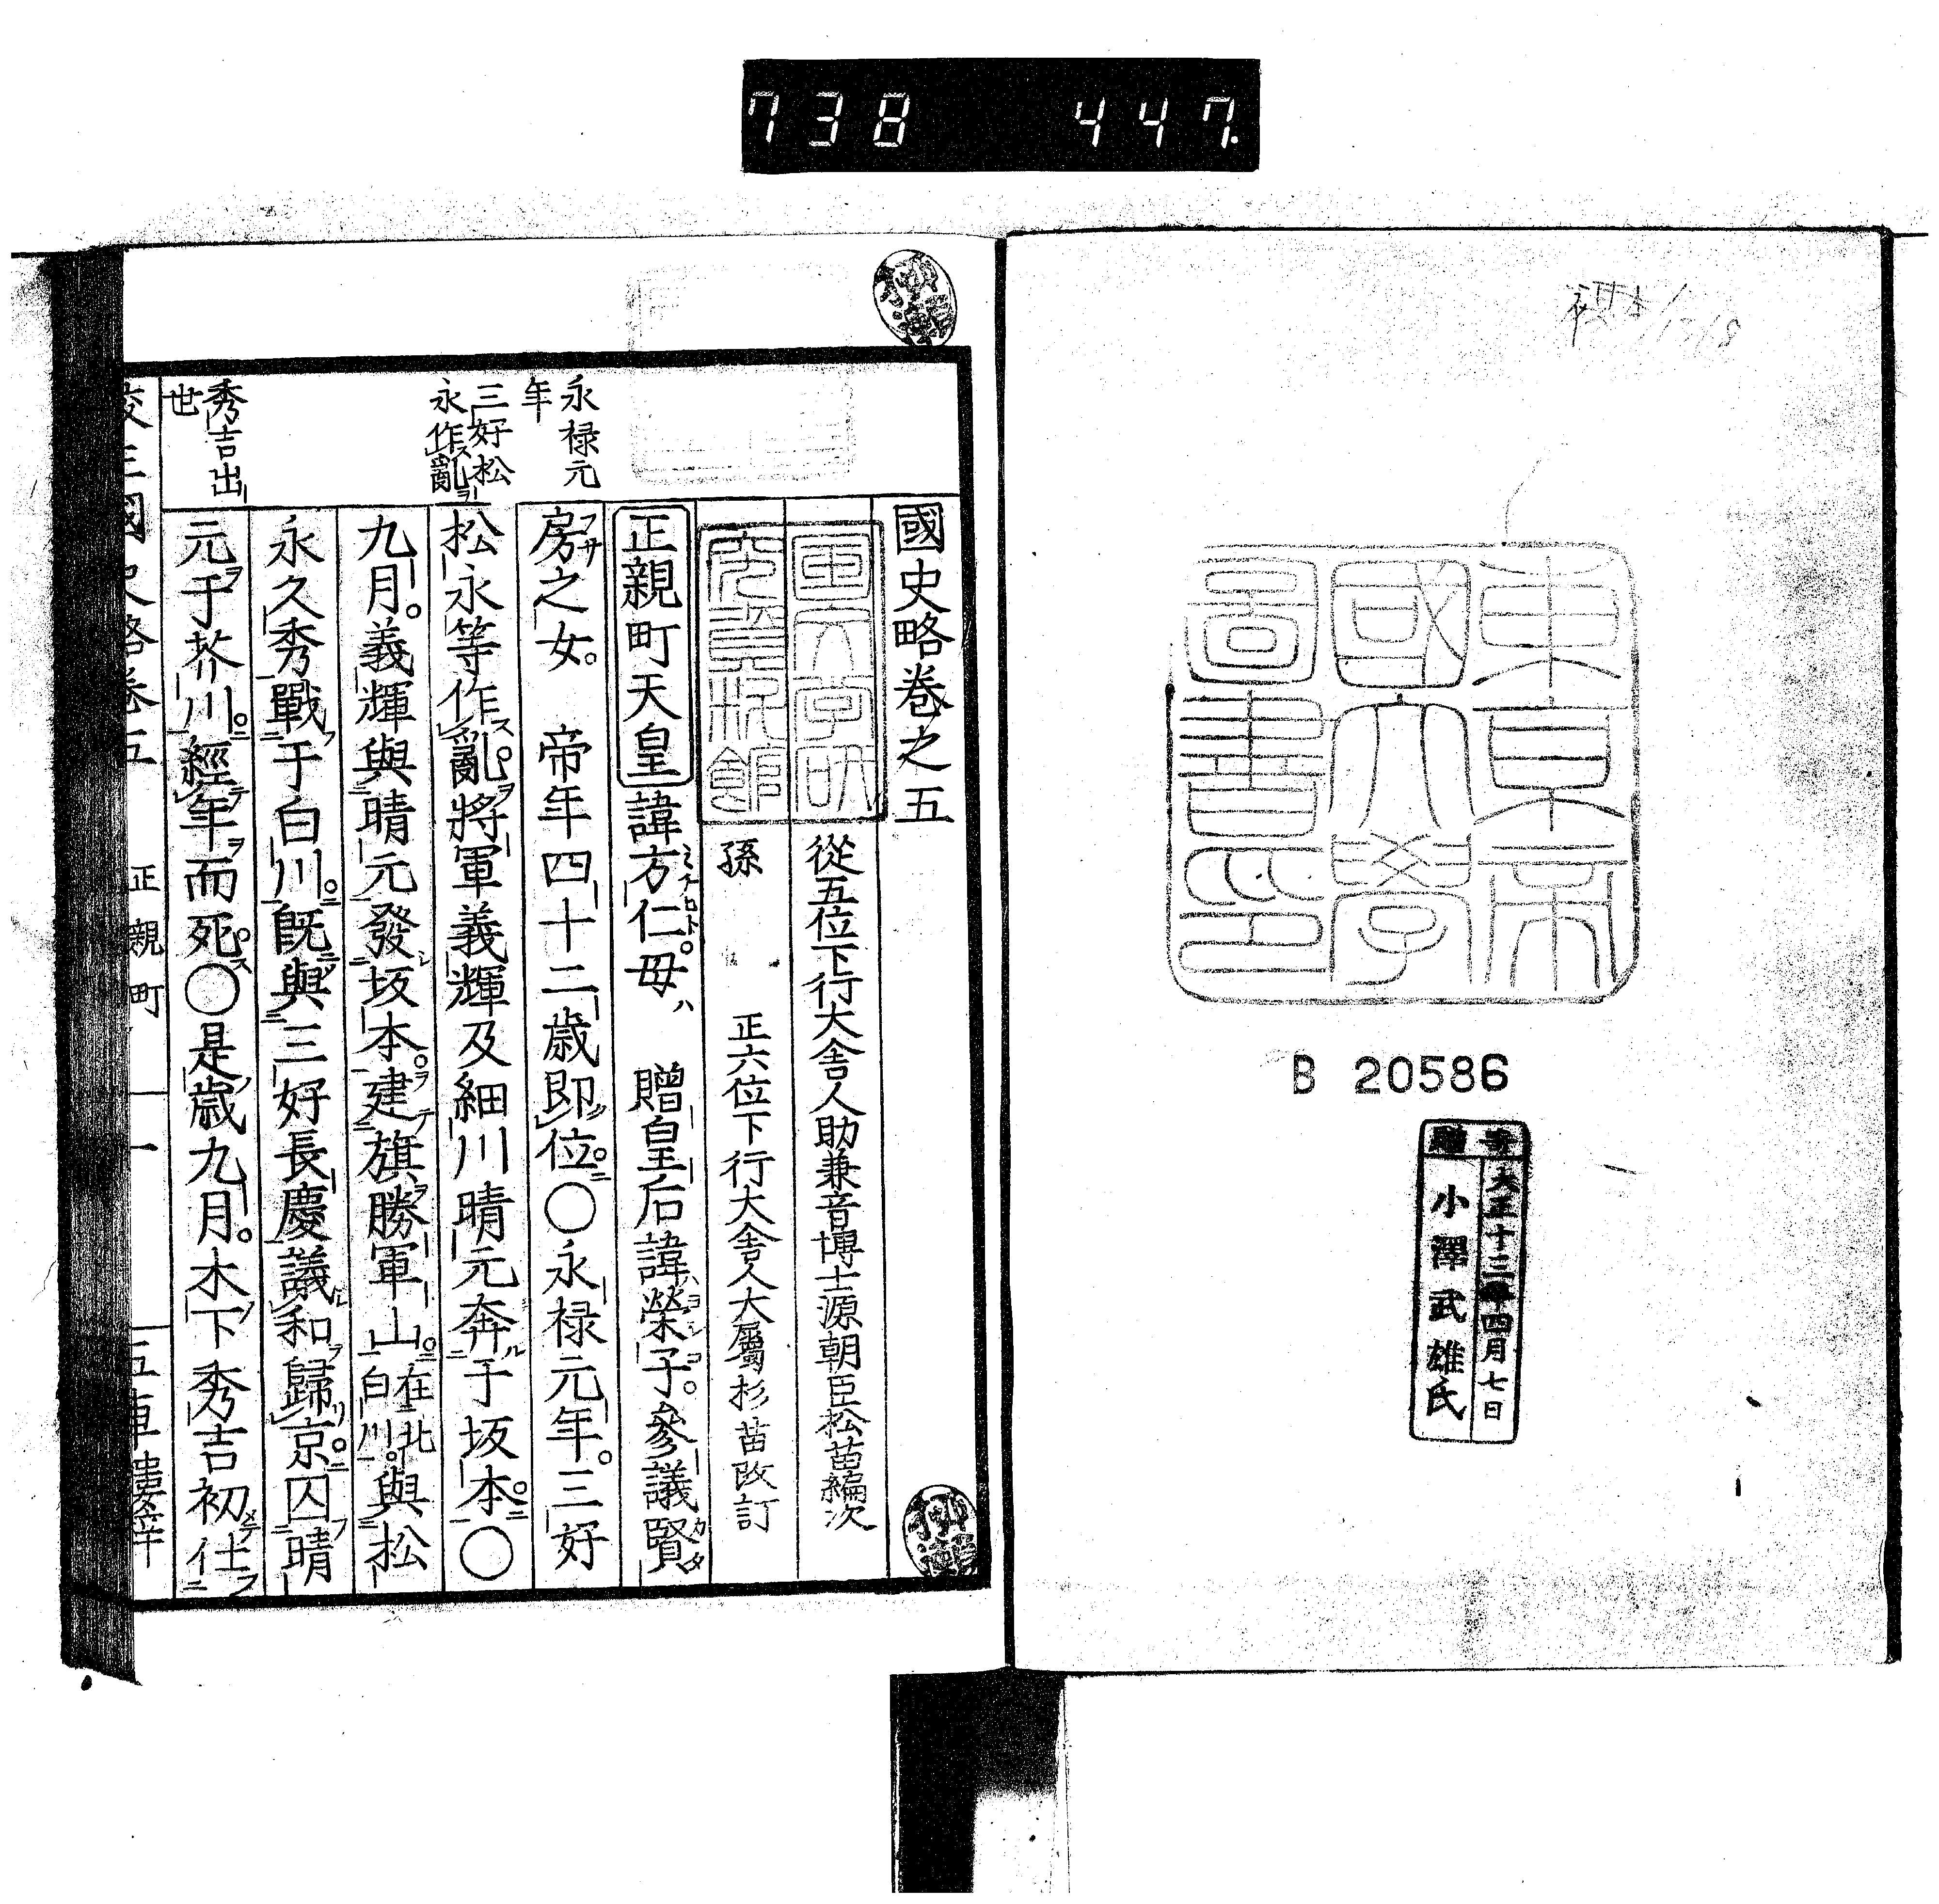 738 447.
東京帝
國大學
圖書印
B 20586
寄贈
大正十三年四月七日
小澤武雄氏
國史略卷之五
從五位下行大舍人助兼音博士源朝臣松苗編次
孫 正六位下行大舍人大屬杉苗改訂
國文学研
究資料館
正親町天皇諱方仁。母ハ 贈皇后諱榮子。參議賢
永禄元
年
房之女。 帝年四十二歳即位。〇永禄元年。三好
三好松
永作亂
松永等作亂。將軍義輝及細川晴元奔于坂本。〇
九月。義輝與晴元發坂本。建旗勝軍山。在北白川。與松
永久秀戰于白川。既與三好長慶議和歸京。囚晴
秀吉出
世
元于芥川。經年而死。〇是歳九月。木下秀吉初仕
國史略卷五 正親町 一 五車樓梓